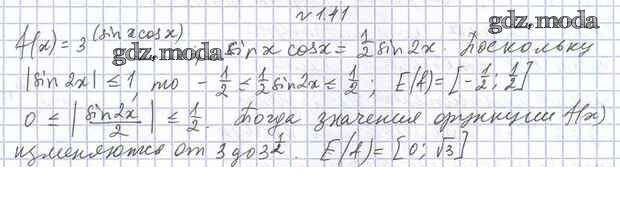 №1.41
f(x) = 3^(|sin x cos x|) gdz.moda sin x cos x = 1/2 sin 2x. Поскольку gdz.moda
|sin 2x| ≤ 1, то - 1/2 ≤ 1/2 sin 2x ≤ 1/2; E(f) = [-1/2; 1/2]
0 ≤ |sin 2x / 2| ≤ 1/2. Тогда значения функции f(x)
изменяются от 3 до 3^(1/2). E(f) = [0; √3]
gdz.moda gdz.moda